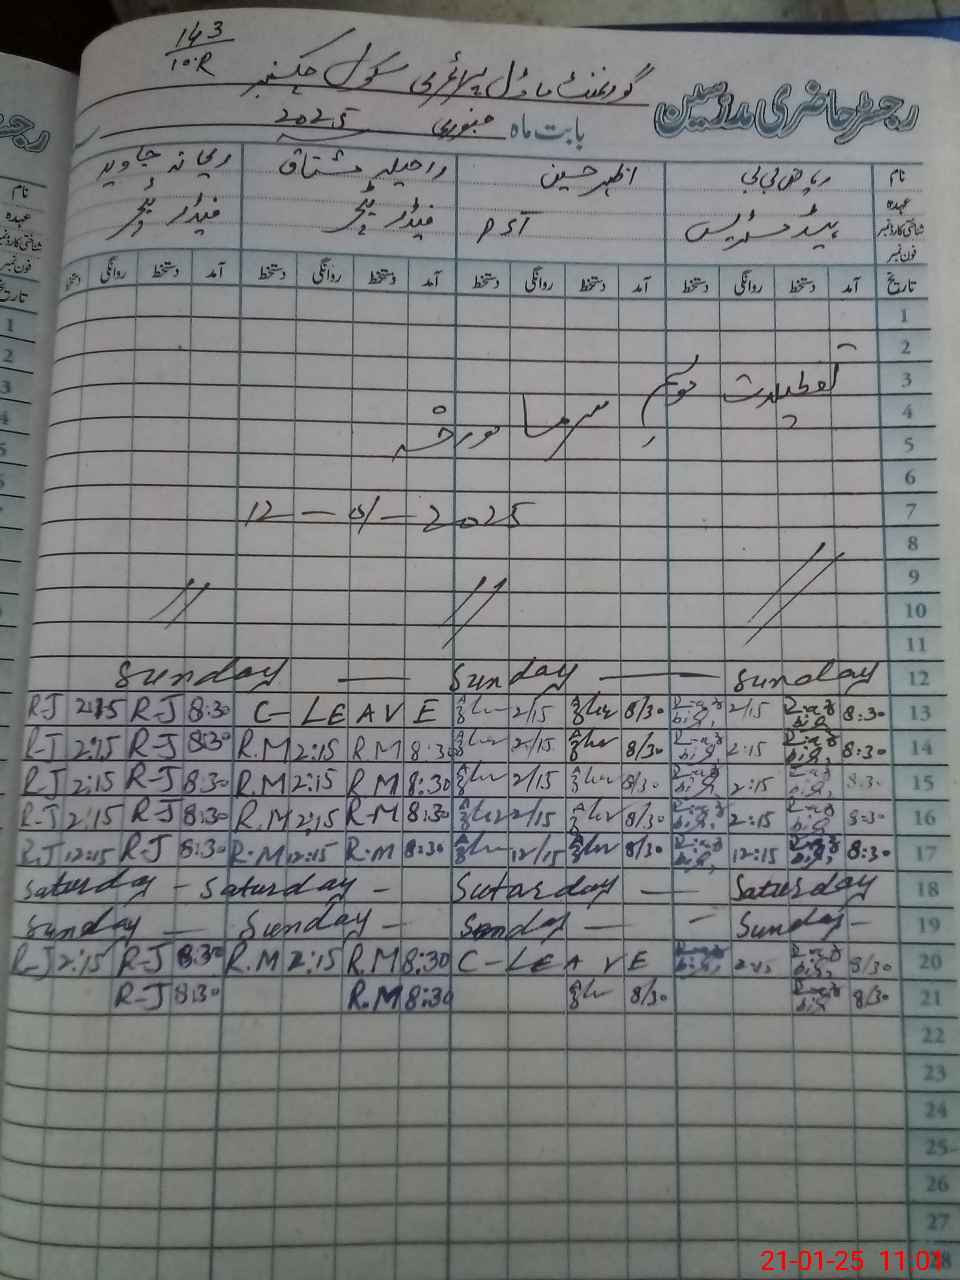 143
10.R
گورنمنٹ ماڈل پرائمری سکول چک نمبر
رجسٹر حاضری مدرسین
بابت ماہ جنوری 2025
نام ریاض بی بی اظہر حسین راحیلہ مشتاق ریحانہ جاوید
عہدہ ہیڈ مسٹریس PST فیڈر ٹیچر فیڈر ٹیچر
شناختی کارڈ نمبر
فون نمبر
تاریخ آمد دستخط روانگی دستخط آمد دستخط روانگی دستخط آمد دستخط روانگی دستخط آمد دستخط روانگی دستخط
1
2
3 تعطیلات موسم
4 سرما مورخہ
5
6
7 12-01-2025
8
9
10
11
Sunday — Sunday — Sunday 12
R-J 2:15 R-J 8:30 C-LEAVE 2/15 8/30 2/15 8:30 13
R-J 2:15 R-J 8:30 R.M 2:15 R M 8:30 2/15 8/30 2:15 8:30 14
R-J 2:15 R-J 8:30 R.M 2:15 R.M 8:30 2/15 8/30 2:15 8:30 15
R-J 2:15 R-J 8:30 R.M 2:15 R-M 8:30 2/15 8/30 2:15 8:30 16
R.J 12:15 R-J 8:30 R.M 12:15 R.M 8:30 12/15 8/30 12:15 8:30 17
Saturday - Saturday - Saturday — Saturday 18
Sunday — Sunday — Sunday — Sunday - 19
R-J 2:15 R-J 8:30 R.M 2:15 R.M 8:30 C-LEAVE 8/30 20
R-J 8:30 R.M 8:30 8/30 8/30 21
22
23
24
25
26
27
28
21-01-25 11:01